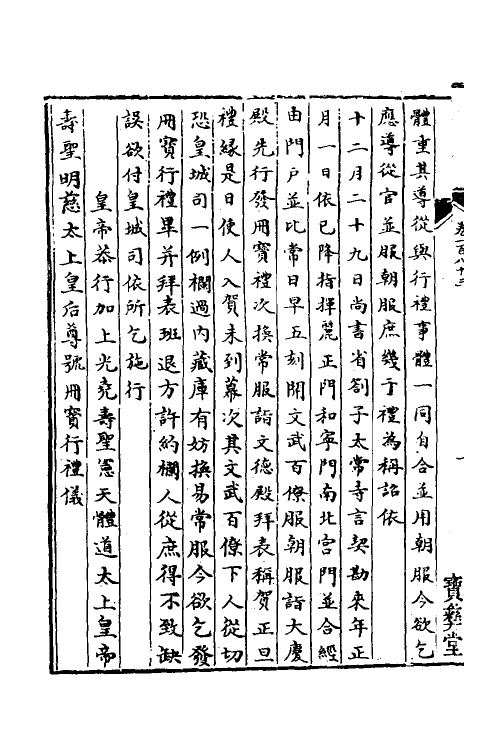 體重其導從與行禮事體一同自合並用朝服今欲乞
應導從官並服朝服庶幾于禮為稱詔依
十二月二十九日尚書省劄子太常寺言契勘來年正
月一日依已降指揮麗正門和寧門南北宮門並合經
由門戶並比常日早五刻開文武百僚服朝服詣大慶
殿先行發冊寶禮次換常服詣文德殿拜表稱賀正旦
禮緣是日使人入賀未到幕次其文武百僚下人從切
恐皇城司一例攔過內藏庫有妨換易常服今欲乞發
冊寶行禮畢并拜表班退方許約攔人從庶得不致缺
誤欲付皇城司依所乞施行
皇帝恭行加上光堯壽聖憲天體道太上皇帝
壽聖明慈太上皇后尊號冊寶行禮儀
卷一百八十三
寶彝堂